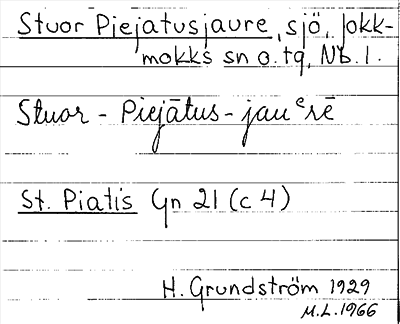 Stuor Piejatusjaure, sjö, Jokk-
mokks sn o. tg, Nb. l.
Stuor - Piejātus - jauᵉrē
St. Piatis Gn 21 (c 4)
H. Grundström 1929
M.L. 1966